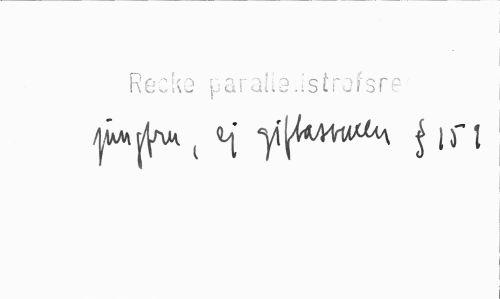 Recke paralle.istrofsre
jungfru, ej giftasvuxen § 151